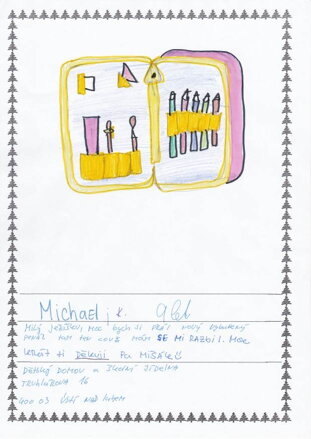 Michael j k. 9 let
Milý Ježíšku, moc bych si přál nový vybavený
penál. Tam ten couš mám SE MI ROZBIL. Moc
krát ti Děkuji Pa Mišálek
DĚTSKÝ DOMOV a Školní Jídelna
TRUHLÁŘOVA 16
400 03 ÚSTÍ NAD Labem